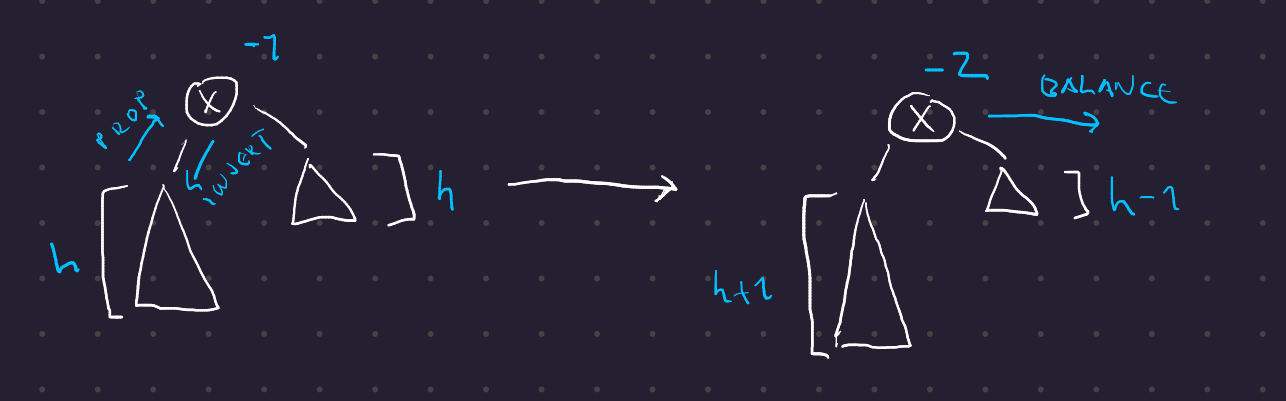 -1
X
PROP
INSERT
h
h
-2
X
BALANCE
h-1
h+1